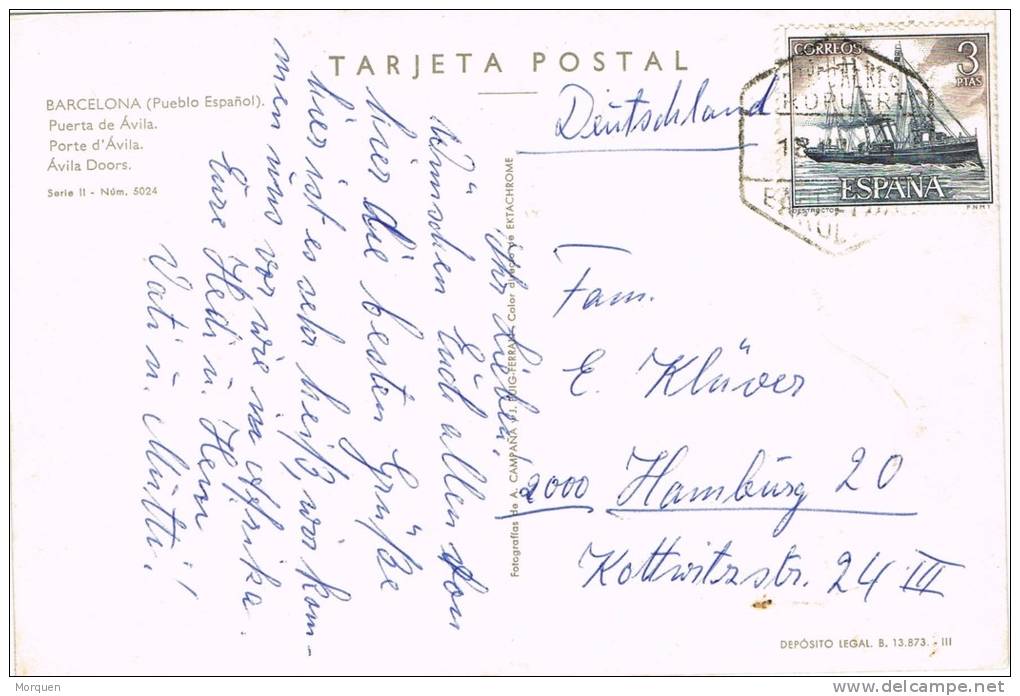 TARJETA POSTAL
BARCELONA (Pueblo Español).
Puerta de Ávila.
Porte d'Ávila.
Ávila Doors.
Serie II - Núm. 5024
Ihr Lieben!
Wünschen Euch allen von
hier die besten Grüße
hier ist es sehr heiß, wir kom-
men uns vor wie in Afrika.
Eure Hedi u.
Vati u. Mutti!
Fotografías de A. CAMPAÑA y J. PUIG-FERRAN - Color directo de EKTACHROME
Deutschland
CORREOS
3
PTAS
ESPAÑA
DESTRUCTOR
F.N.M.T.
Fam.
E. Klüver
2000 Hamburg 20
Kottwitzstr. 24 III
DEPÓSITO LEGAL. B. 13.873. - III
Morquen
delcampe.net